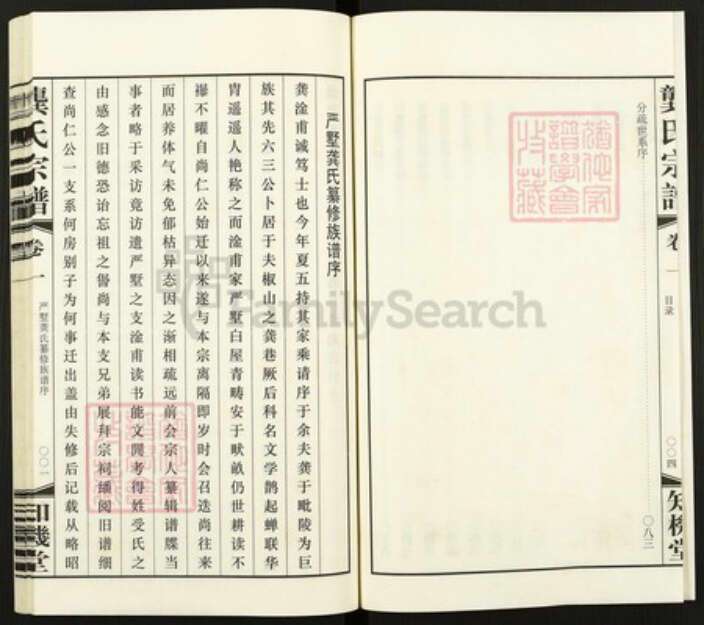 龔氏宗譜
卷一
目录
〇〇四
知機堂
分疏世系序
〇八三
严墅龚氏纂修族谱序
龚淦甫诚笃士也今年夏五持其家乘请序于余夫龚于毗陵为巨
族其先六三公卜居于夫椒山之龚巷厥后科名文学鹊起蝉联华
胄遥遥人艳称之而淦甫家严墅白屋青畴安于畎亩仍世耕读不
襟不曜自尚仁公始迁以来遂与本宗离隔即岁时会召迭尚往来
而居养体气未免郁枯异态因之渐相疏远前会宗人纂辑谱牒当
事者略于采访竟访遗严墅之支淦甫读书能文閒考得姓受氏之
由感念旧德恐诒忘祖之訾尚与本支兄弟展拜宗祠缅阅旧谱细
查尚仁公一支系何房别子为何事迁出盖由失修后记载从略昭
龚氏宗谱
卷一
严墅龚氏纂修族谱序
〇〇一
FamilySearch